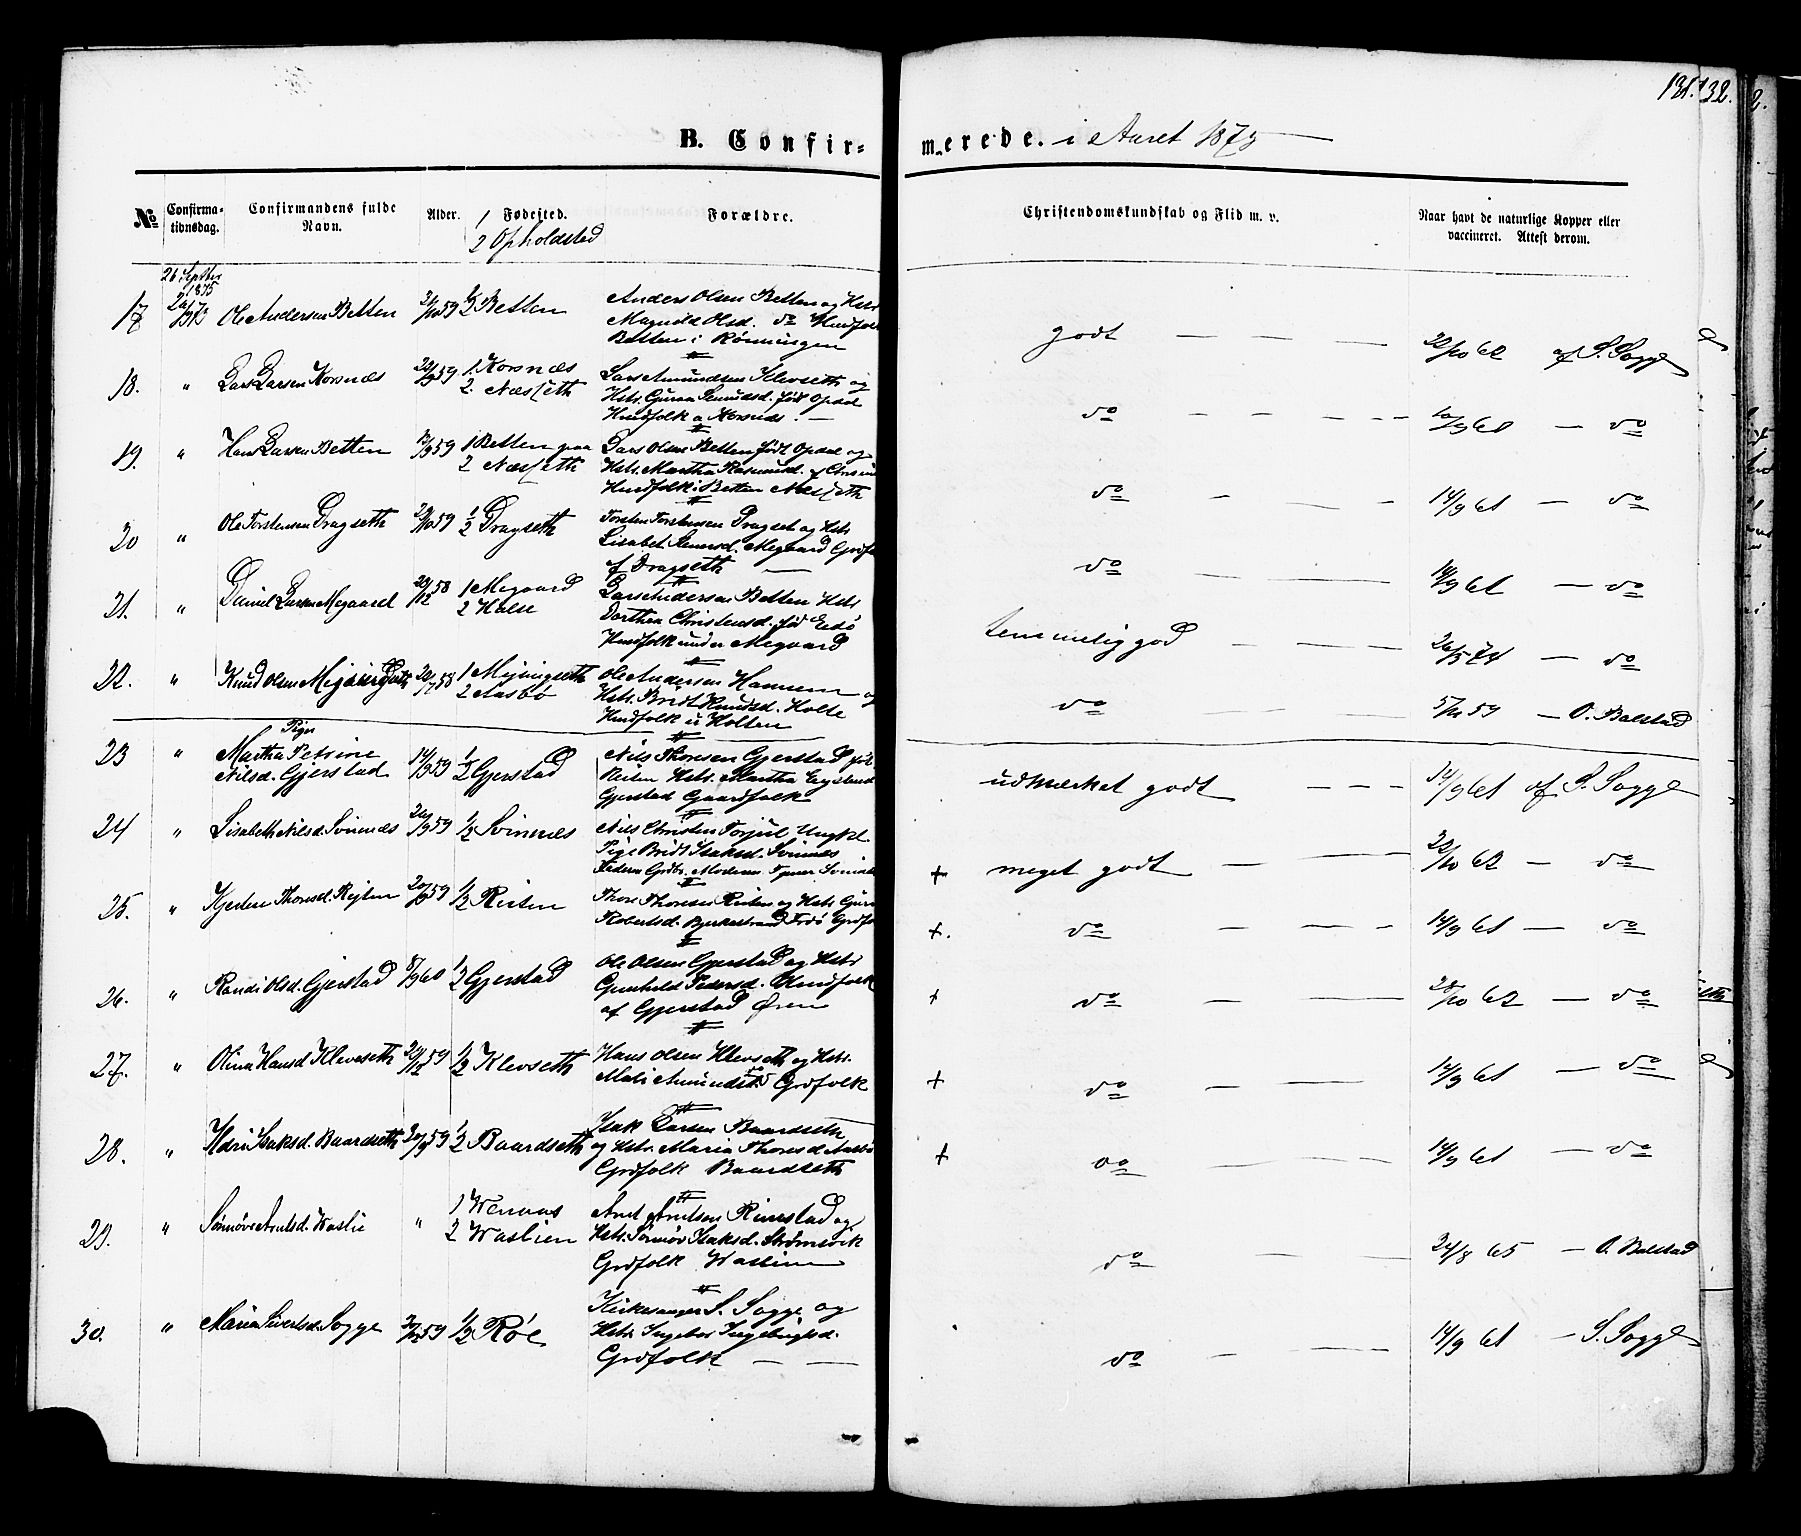 131. 132.
B. Confir- merede. i Aaret 1875
No
Confirmationsdag.
Confirmandens fulde Navn.
Alder.
1 Fødested.
2 Opholdsted
Forældre.
Christendomskundskab og Flid m. v.
Naar havt de naturlige Kopper eller vaccineret. Attest derom.
26 Septbr 1875
17 Ole Andersen Betten 59 1/2 Betten Anders Olsen Betten og Hstr
Magnild Olsd. do Huusfolk
Betten i Rønningen
godt — — — 22/10 62 af S. Sogge
18. " Lars Larsen Korsnæs 59 1 Korsnæs
2. Næsseth
Lars Amundsen Klevseth og
Hstr. Guroa født Opdøl
Huusfolk a Korsnæs. —
do — — — 60 — do
19. " Hans Larsen Betten 59 1 Betten
2 Næsseth
Lars Olsen Betten født Opdøl og
Hstr. Martha Rasmusd.
Huusfolk i Betten Næsseth
do — — — 14/9 61 — do
20 " Ole Torstensen Dragseth 59 1/2 Dragseth
Torsten Torstensen Dragset og Hstr
Lisabet Megaard Grdfolk
af Dragseth —
do — — — 14/9 61 — do
21. " Daniel Larsen Megaard 20/12 58 1 Megaard
2 Holse
Lars Andersen Betten Hstr
Dorthea Christensd. fød
Huusfolk under Megaard
temmelig god — — 74 — do
22. " Knud Olsen 20/7 58 1
2 Aasbø
Ole Andersen Hannem og
Hstr. Bridt Knudsd. Holte
Huusfolk u Holten
do — — — 59 — O. Bolstad
Piger
23 " Martha Petrine
Nilsd. Gjerstad 14/9 59 1/2 Gjerstad
Nils Thoresen Gjerstad
Reiten Hstr. Martha
Gjerstad Gaardfolk
udmærket godt — — — 14/9 61 af S. Sogge
24 " Lisabeth Nilsd. Svinnæs 59 1/2 Svinnæs
Nils Christen Torjul Ungkl.
Pige Bridt Isaksd. Svinnæs
+ meget godt — — 22/10 62 — do
25. " Thoresd. Rejten 59 1/2 Reiten
Thore Thoresen Reiten og Hstr Guroa
Robertsd. Bjerkestrand Grdfolk
+. do — — — 14/9 61 — do
26. " Randi Olsd. Gjerstad 60 1/2 Gjerstad
Ole Olsen Gjerstad og Hstr
Gunhild Pedersd. Huusfolk
af Gjerstad Øren
+ do — — — 28/10 62 — do
27. " Olina Hansd Klevseth 59 1/2 Klevseth
Hans Olsen Klevseth og Hstr.
Mali Amundsd. Grdfolk
+ do — — — 14/9 61 — do
28. " Isaksd. Baardseth 59 1/2 Baardseth
Isak Larsen Baardseth
og Hstr. Maria Thoresd Aasbø
Grdfolk Baardseth
+ do — — — 14/9 61 — do
29. " Sønnøve Arntsd. Waslie " 1 Wenaas
2 Waslien
Arnt Arntsen Rinnstad og
Hstr. Sønnøv Isaksd. Strømsvik
Grdfolk Waslien
do — — 24/8 65 — O. Bolstad
30. " Maria Sivertsd. Sogge 59 1/2 Røe
Kirkesanger S. Sogge og
Hstr. Ingebor Ingebrigtsd.
Grdfolk — —
do — — — 14/9 61 — S. Sogge